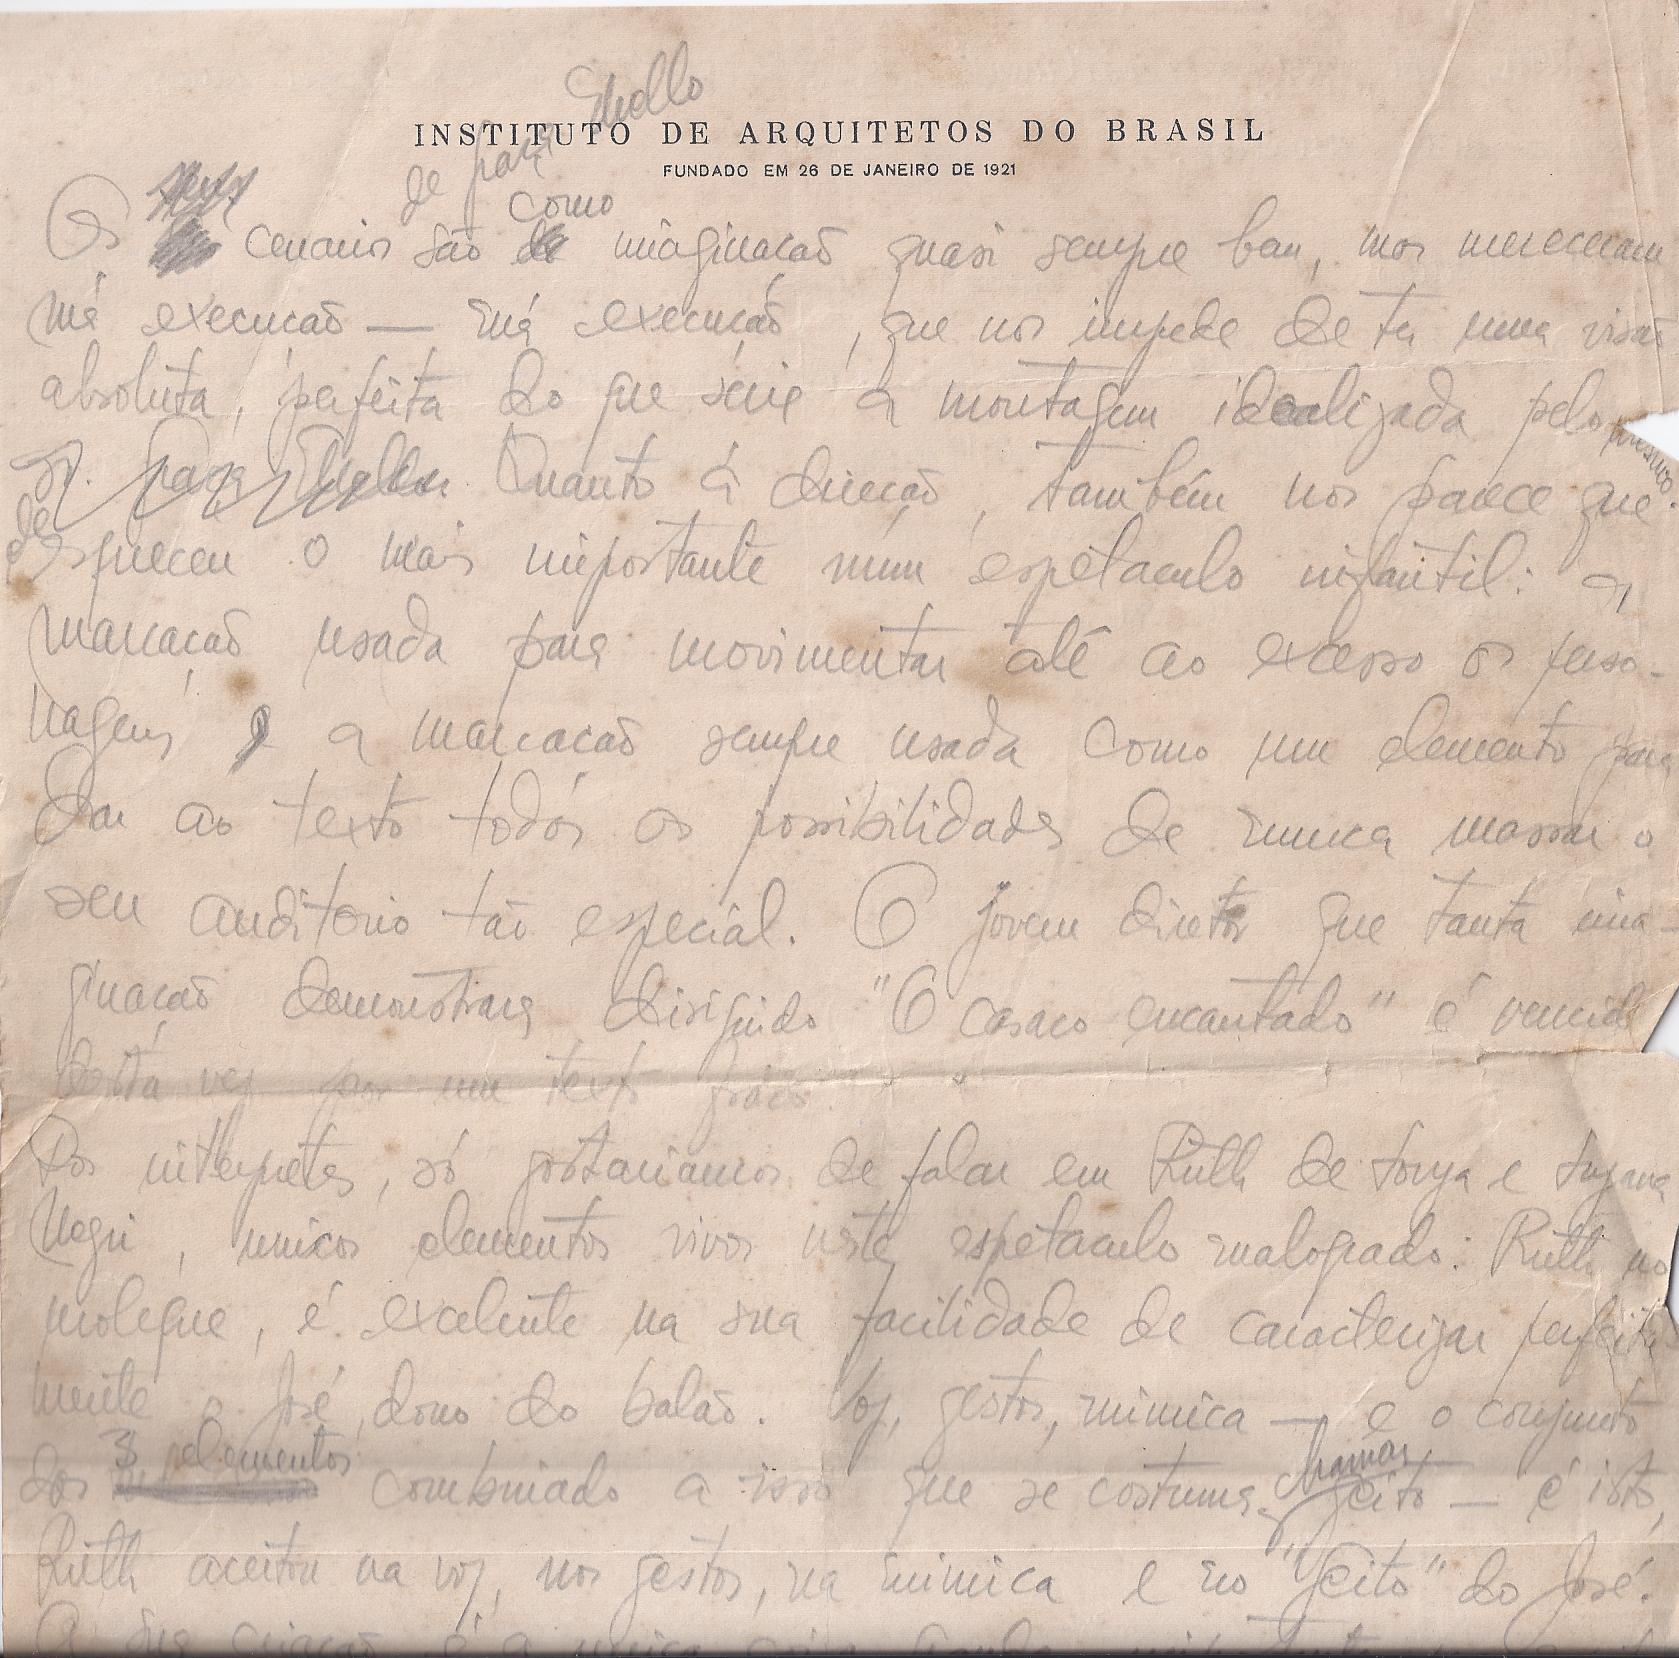 Mello
INSTITUTO DE ARQUITETOS DO BRASIL
de para
FUNDADO EM 26 DE JANEIRO DE 1921
como
Os cenarios são imaginacão quasi sempre bem, mas mereceram
má execucão — má execução, que nos impede de ter uma visão
absoluta, perfeita do que seria a montagem idealizada pelo mesmo.
Sr. Quanto á direcão, também nos parece que
de
esqueceu o mais importante num espetaculo infantil: a
marcacão usada para movimentar até ao excesso os perso-
nagens, a marcacão sempre usada como um elemento para
dar ao texto todas as possibilidades de nunca massar o
seu auditorio tão especial. O jovem diretor que tanta ima-
ginacão demonstrara dirigindo "O casaco encantado" é vencido
desta vez por um texto
Dos interpretes, só gostariamos de falar em Ruth de Souza e
Negri, unicos elementos vivos neste espetaculo malogrado: Ruth no
moleque, é excelente na sua facilidade de caracterizar perfeita-
mente o José, dono do balão. Voz, gestos, mimica — e o conjunto
3 elementos
chamar
dos combinado a isso que se costuma geito — é isto,
Ruth aceitou na voz, nos gestos, na mimica e no "geito" do José.
A sua criacão é a unica coisa